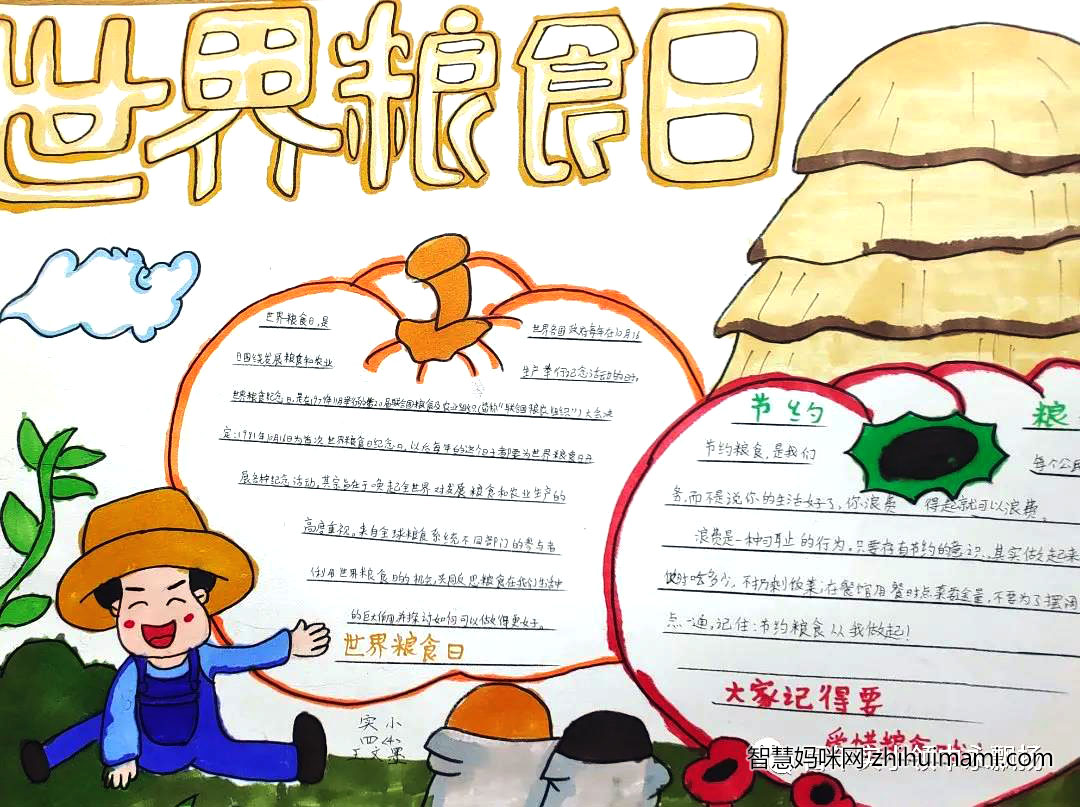 世界粮食日
世界粮食日,是
世界各国政府每年在10月16
日围绕发展粮食和农业
生产举行纪念活动的日子。
世界粮食纪念日,是在1979年11月举行的第20届联合国粮食及农业组织(简称"联合国粮农组织")大会决
定:1981年10月16日为首次世界粮食日纪念日。以后每年的这个日子都要为世界粮食日开
展各种纪念活动。其宗旨在于唤起全世界对发展粮食和农业生产的
高度重视。来自全球粮食系统不同部门的参与者
利用世界粮食日的机会,共同反思粮食在我们生活中
的巨大作用,并探讨如何可以做得更好。
世界粮食日
节约
粮
节约粮食,是我们
每个公民
务,而不是说你的生活好了,你浪费得起就可以浪费。
浪费是一种可耻的行为。只要存有节约的意识,其实做起来
吃多少,不扔剩饭菜;在餐馆用餐时点菜要适量,不要为了摆阔
点一通,记住:节约粮食从我做起!
大家记得要
爱惜粮食
实小
四
王文墨
智慧妈咪网 zhihuimami.com